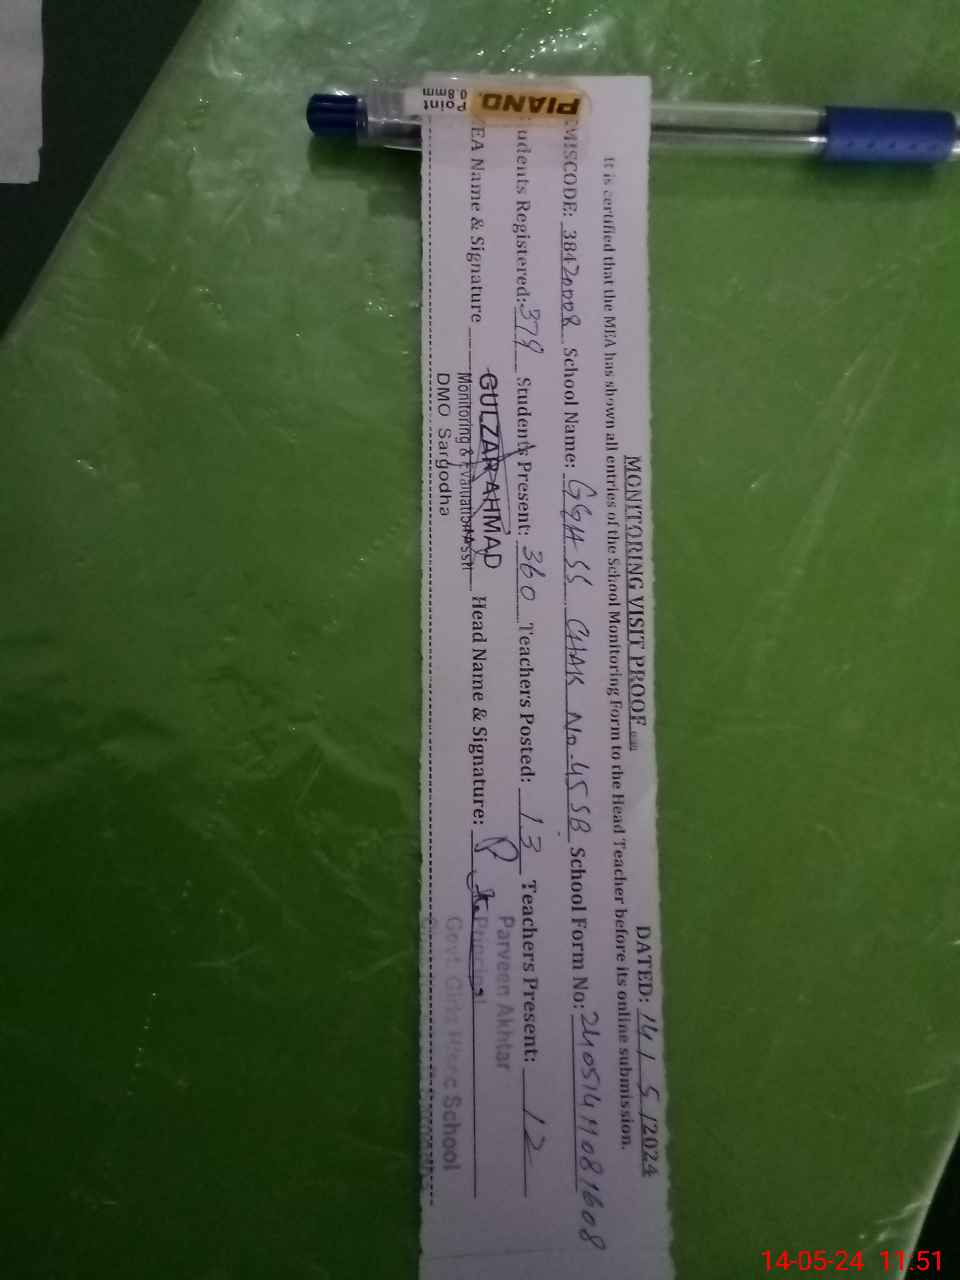 MONITORING VISIT PROOF
DATED: 14 / 5 /2024
It is certified that the MEA has shown all entries of the School Monitoring Form to the Head Teacher before its online submission.
MISCODE: 38420008 School Name: GGHSS CHAK No.45 SB School Form No: 24051411081608
udents Registered: 379 Students Present: 360 Teachers Posted: 13 Teachers Present: 12
EA Name & Signature GULZAR AHMAD Head Name & Signature: Parveen Akhtar
Monitoring & Evaluation Asstt Principal
DMO Sargodha Govt. Girls H/Sec School
PIANO
Point
0.8mm
14-05-24 11:51